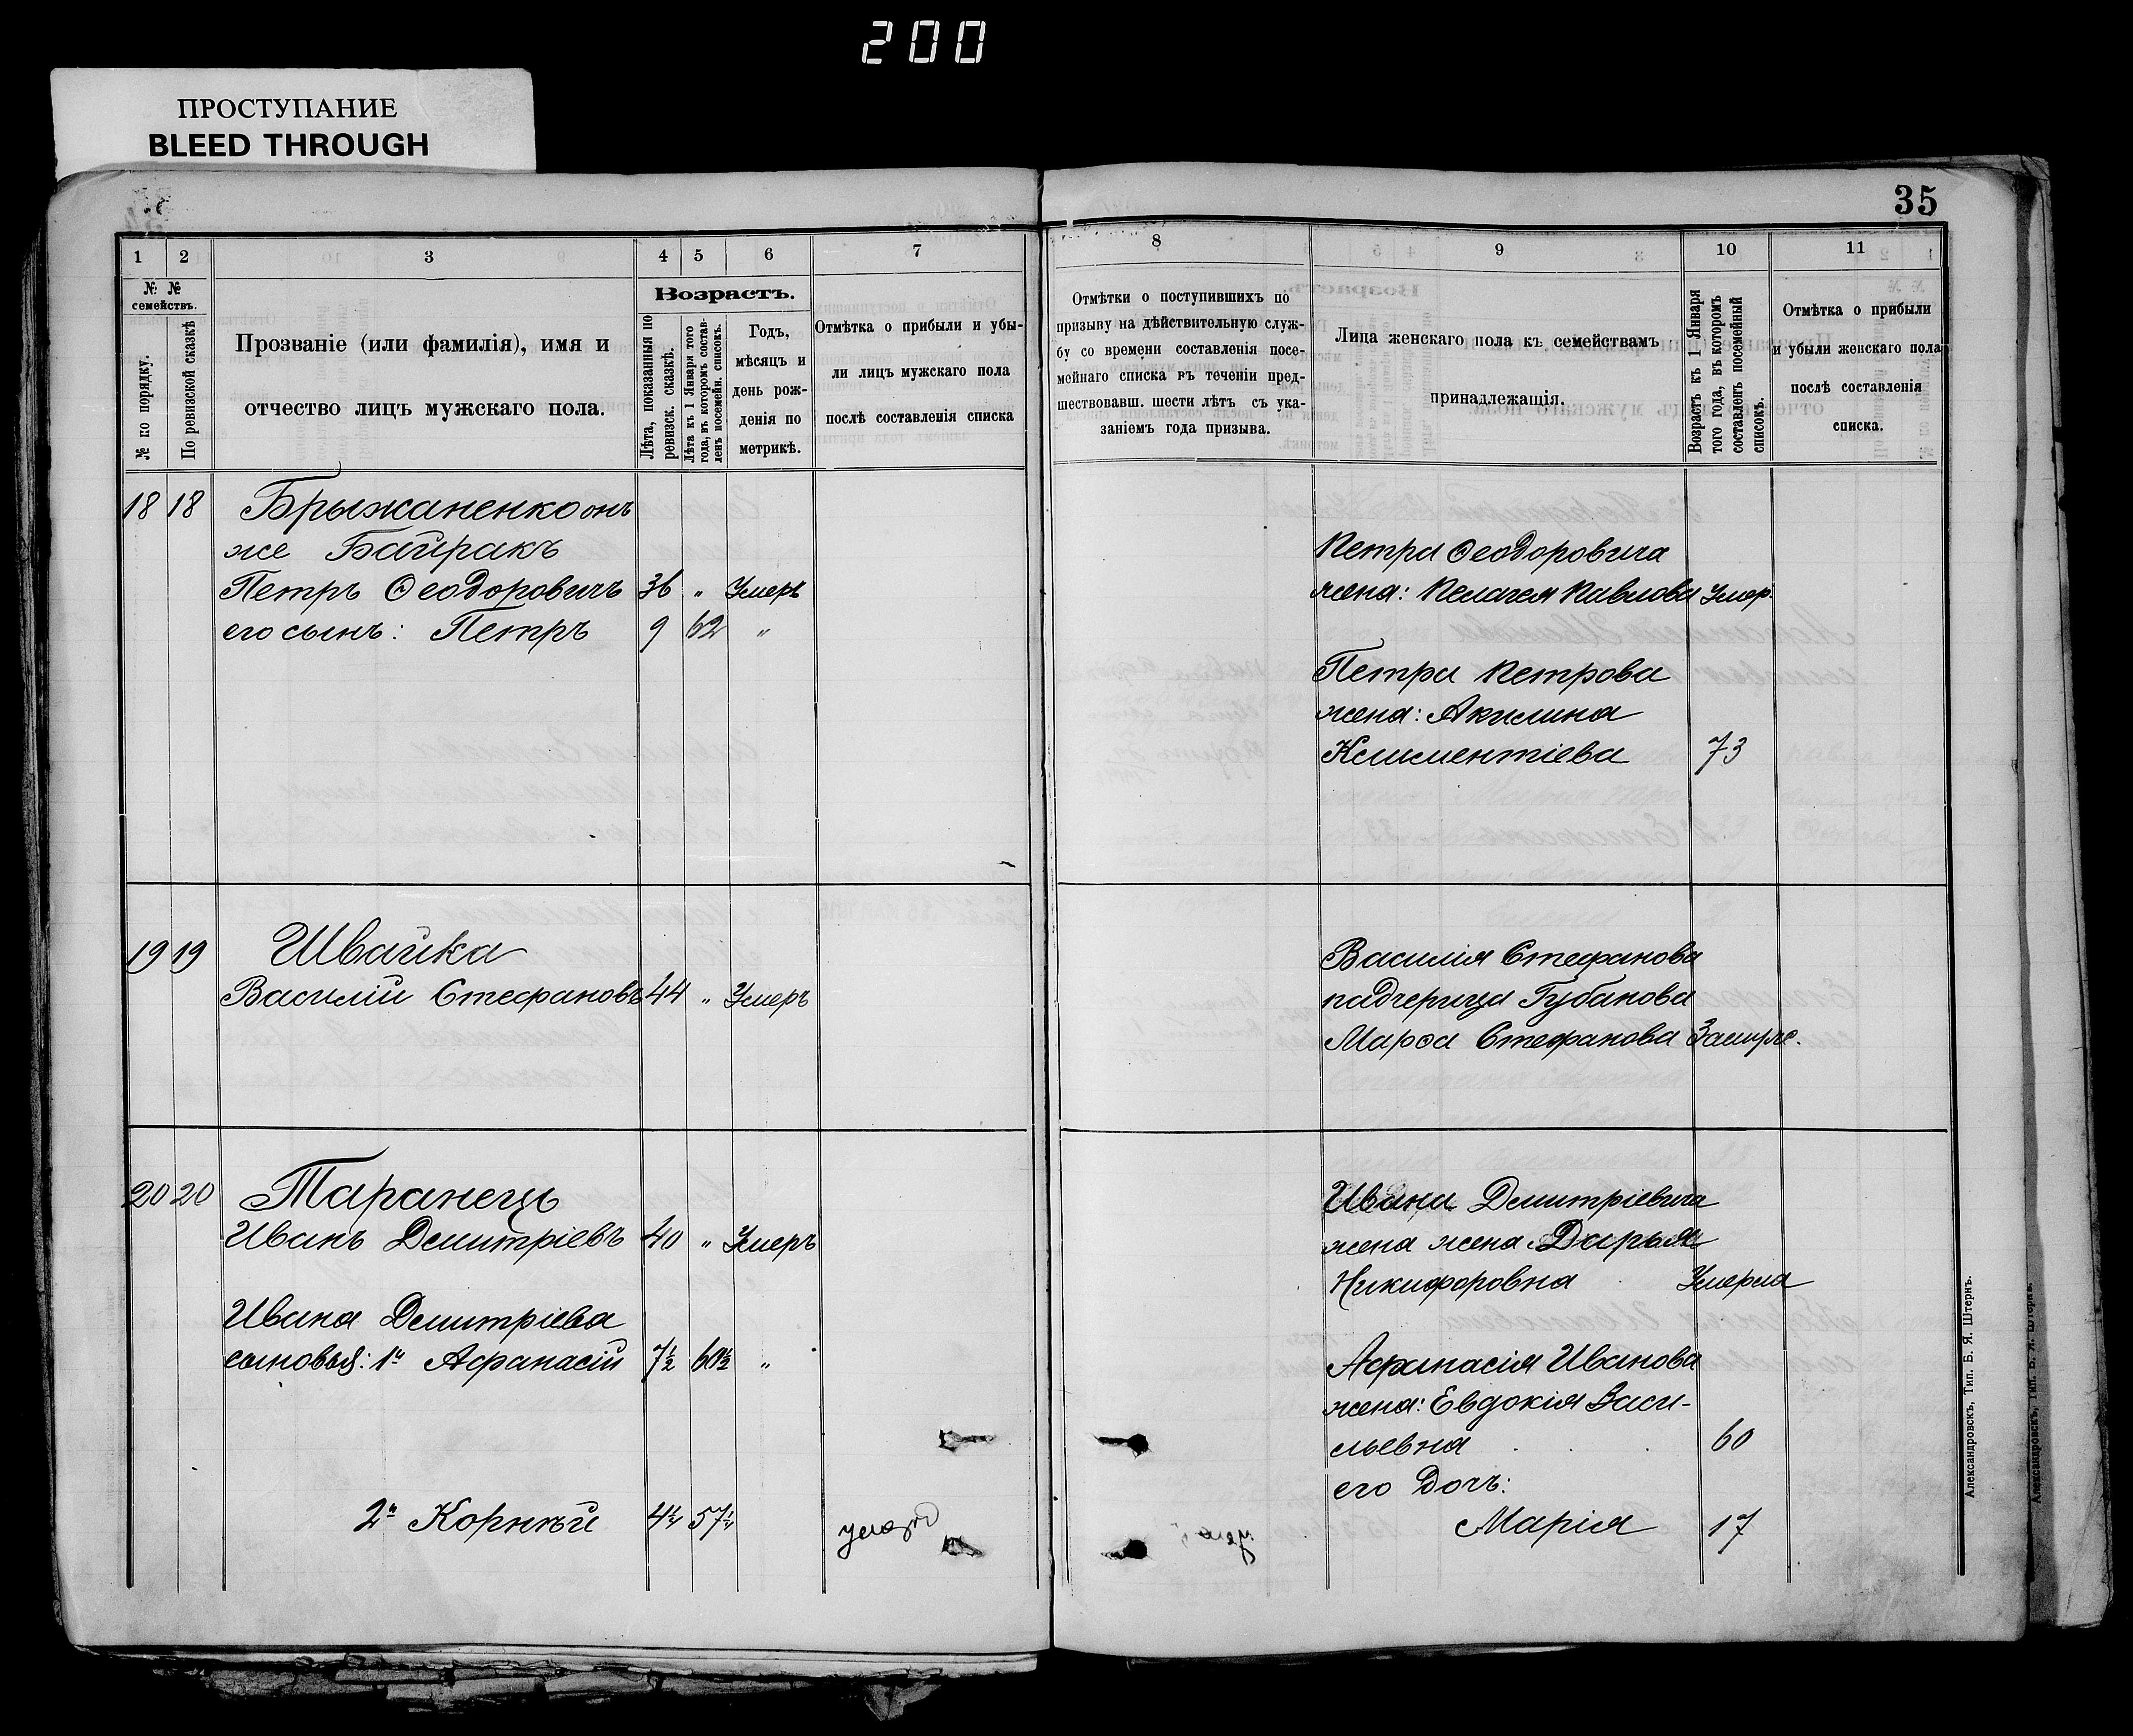 200
ПРОСТУПАНИЕ
BLEED THROUGH
35
1 2 3 4 5 6 7
№ № семействъ.
№ по порядку.
По ревизской сказкѣ
Прозваніе (или фамилія), имя и
отчество лицъ мужскаго пола.
Возрастъ.
Лѣта, показанныя по
ревизск. сказкѣ.
Лѣта къ 1 Января того
года, въ которомъ состав-
ленъ посемейн. списокъ.
Годъ,
мѣсяцъ и
день рож-
денія по
метрикѣ.
Отмѣтка о прибыли и убы-
ли лицъ мужскаго пола
послѣ составленія списка
18 18 Брыжаненко онъ
же Байракъ
Петръ Ѳеодоровичъ 36 " Умеръ
его сынъ: Петръ 9 62 "
19 19 Швайка
Василій Стефановъ 44 " Умеръ
20 20 Таранецъ
Иванъ Дмитріевъ 40 " Умеръ
Ивана Дмитріева
сыновья: 1й Афанасій 7½ 60½ "
2й Корнѣй 4½ 57½
8 9 10 11
Отмѣтки о поступившихъ по
призыву на дѣйствительную служ-
бу со времени составленія посе-
мейнаго списка въ теченіи пред-
шествовавш. шести лѣтъ съ ука-
заніемъ года призыва.
Лица женскаго пола къ семействамъ
принадлежащія.
Возрастъ къ 1 Января
того года, въ которомъ
составленъ посемейный
списокъ.
Отмѣтка о прибыли
и убыли женскаго пола
послѣ составленія
списка.
Петра Ѳеодоровича
жена: Пелагея Павлова Умер.
Петра Петрова
жена: Акилина
Климентіева 73
Василія Стефанова
падчерица Губанова
Марѳа Стефанова Замуже.
Ивана Дмитріевича
жена жена Дарья
Никифоровна Умерла
Афанасія Иванова
жена: Евдокія Васи-
льевна 60
его Дочь:
Марія 17
Александровскъ, Тип. Б. Я. Штернъ.
Александровскъ, Тип. Б. Я. Штернъ.